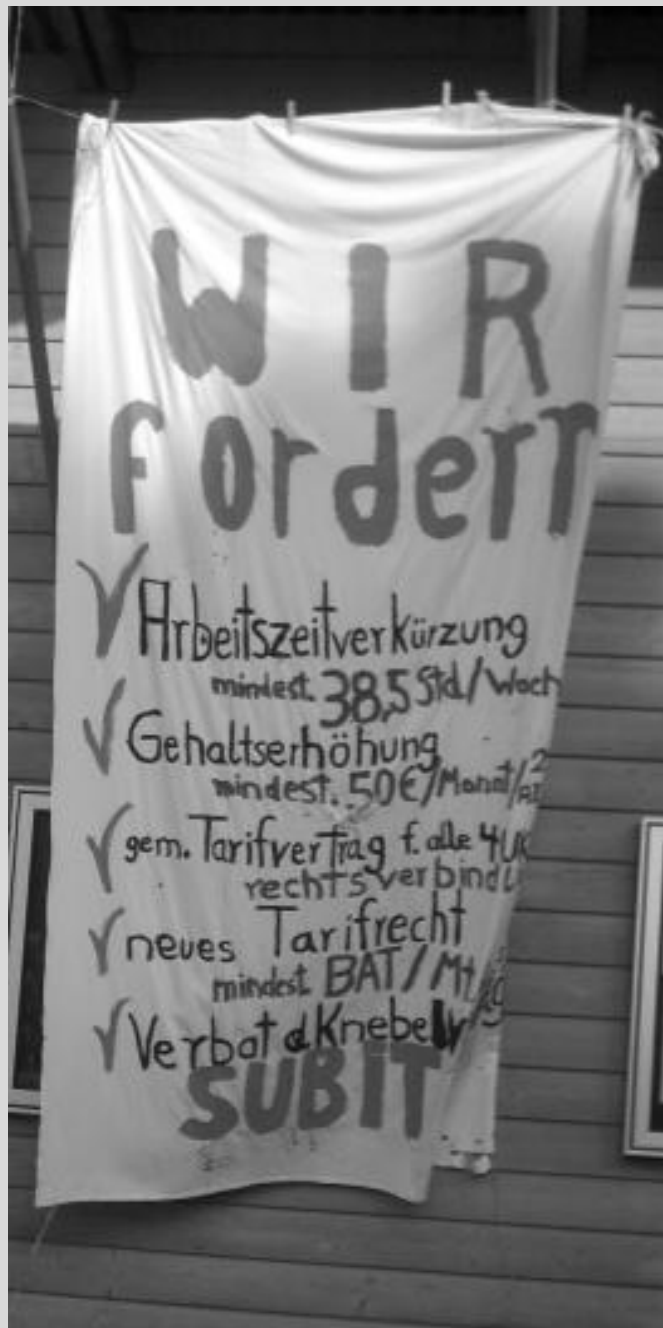 WIR
fordern
Arbeitszeitverkürzung
mindest. 38,5 Std/Woch
Gehaltserhöhung
mindest. 50€/Monat/
gem. Tarifvertrag f. alle 4 UK
rechtsverbindl
neues Tarifrecht
mindest. BAT/Mt
Verbot d Knebel
SUBIT